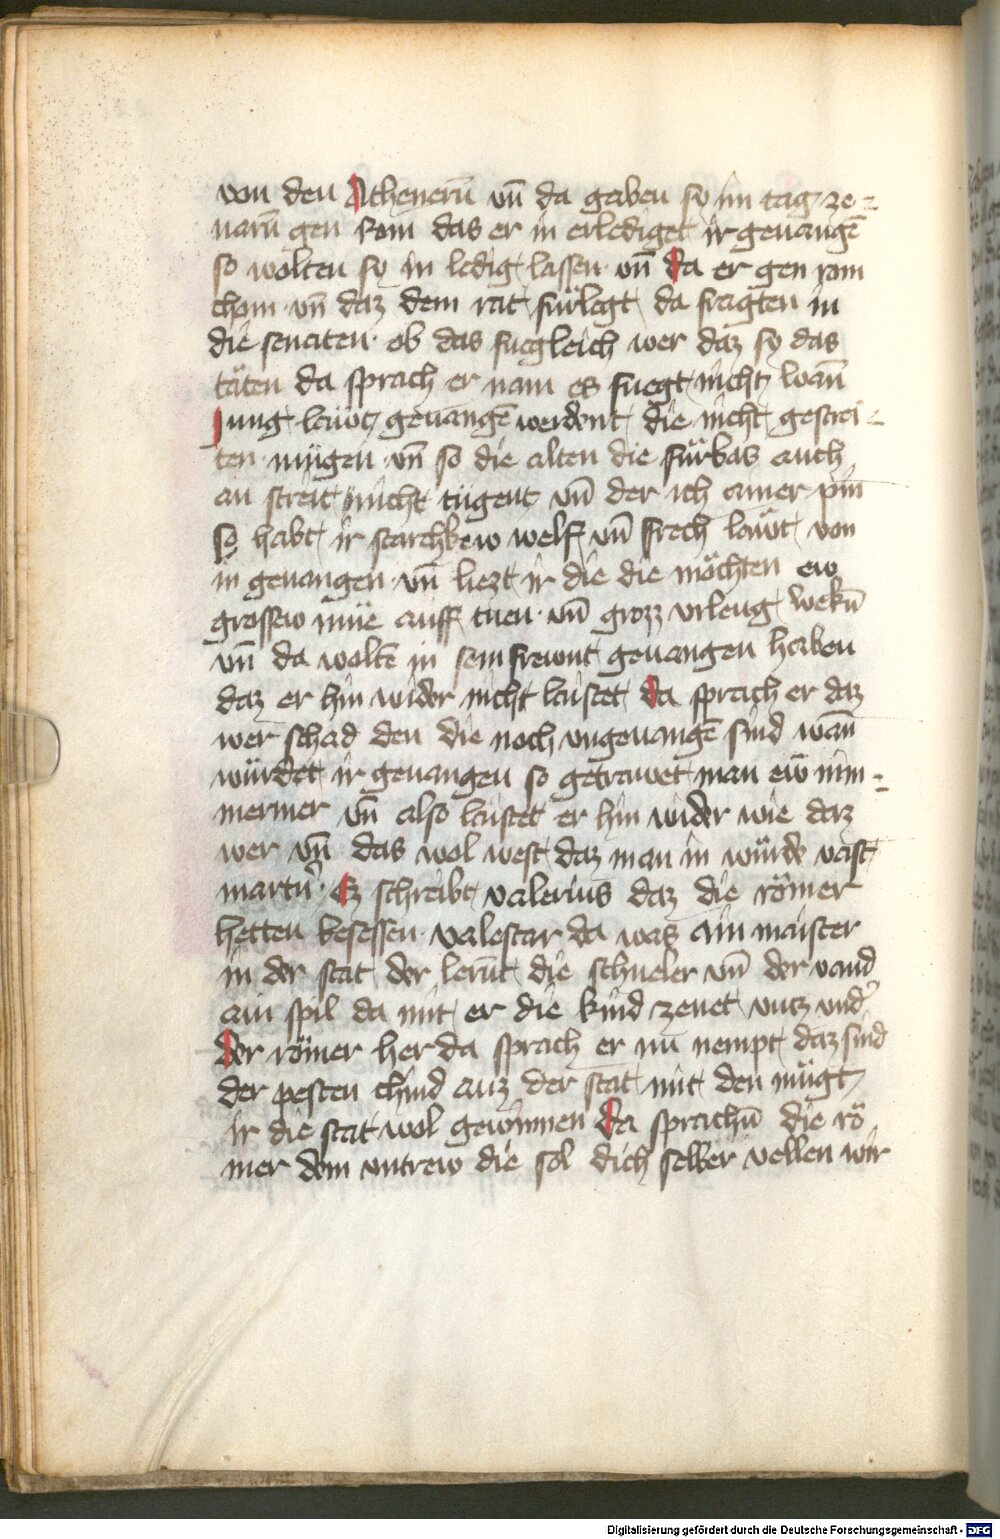 von den Athenerū vn̄ da gaben sy im tag ze=
varn̄ gen Rom das er in erlediget ir geuangē
so wolten sy in ledig lassen · vn̄ da er gen rom
chom · vn̄ daz dem rat fürlegt da fragten in
die senaten · ob das fuegleich wer daz sy das
täten da sprach er nain es fuegt nicht wan̄
jung läwt geuangē werdent die nicht gestrei=
ten mügen · vn̄ so die alten die fürbas auch
an streit nicht tügent vn̄ der ich ainer pin
so habt ir starchkew welf vn̄ frech läwt von
in geuangen · vn̄ liezt ir die die möchten ew
grossew müe auff tuen · vn̄ grozz vrleug wekn̄
vn̄ da woltē in sein frewnt geuangen haben
daz er hin wider nicht laistet da sprach er daz
wer schad den die noch vngeuangē sind wan̄
würdet ir geuangen so getrawet man ew nim=
mermer vn̄ also laistet er hin wider wie daz
wer vn̄ das wol west daz man in würde vast
martn̄ · Ez schreibt valerius daz die römer
hetten besessen · valestar da was ain maister
in der stat der lernt die schueler vn̄ der vand
ain spil da mit er die kind zenet vntz vnd̾
der römer her da sprach er nu nempt daz sind
der pesten chind auz der stat mit den mügt
ir die stat wol gewinnen da sprachn̄ die rö
mer dein vntrew die sol dich selber vellen wir
Digitalisierung gefördert durch die Deutsche Forschungsgemeinschaft - DFG